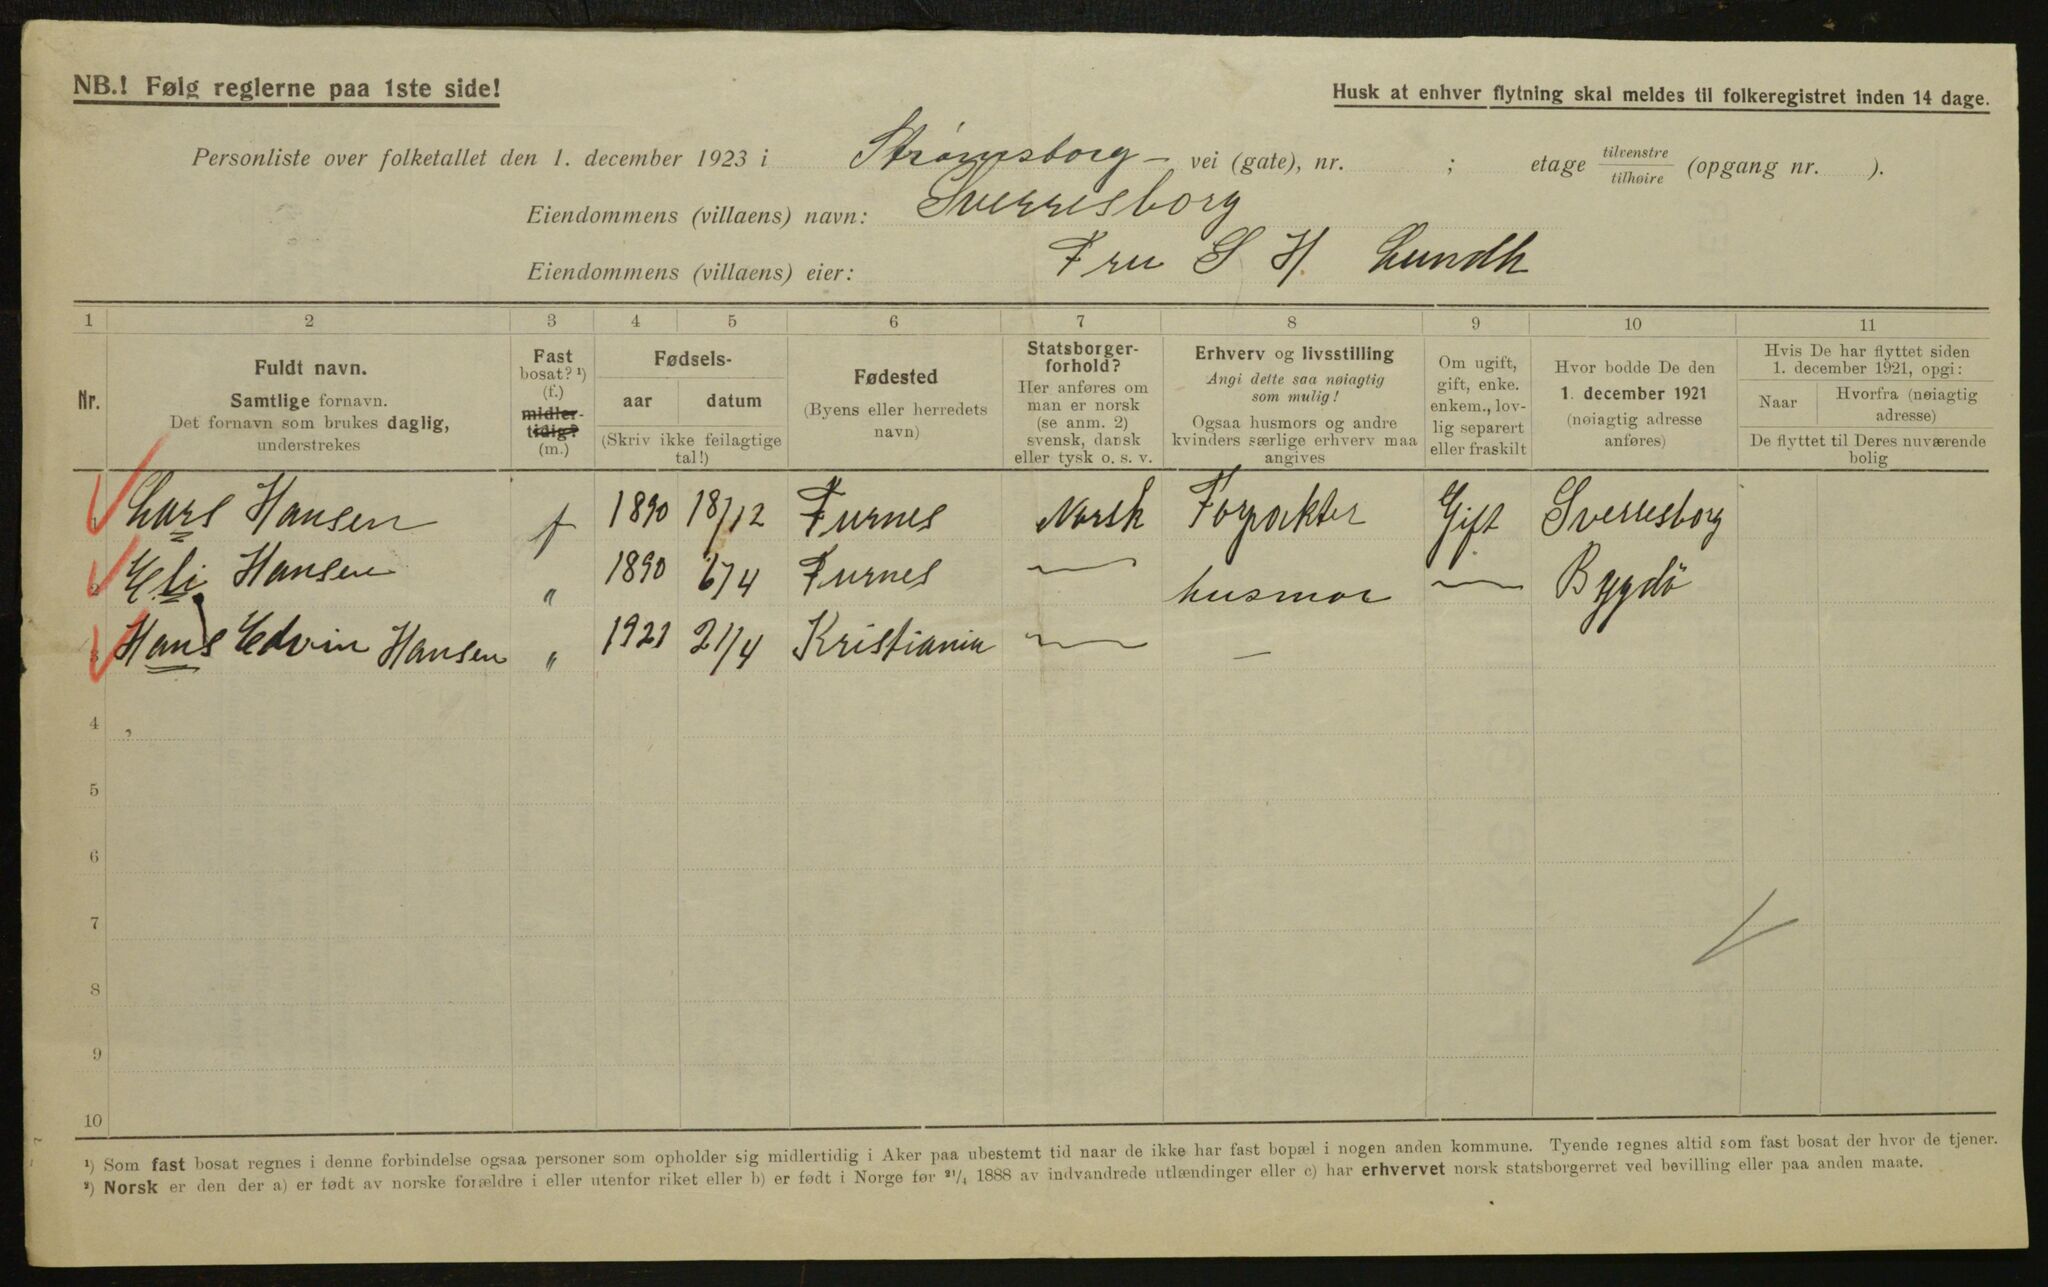 NB.! Følg reglerne paa 1ste side!
Husk at enhver flytning skal meldes til folkeregistret inden 14 dage.
Personliste over folketallet den 1. december 1923 i Strømsborg- vei (gate), nr. ; etage tilvenstre/tilhøire (opgang nr. ).
Eiendommens (villaens) navn: Sverresborg
Eiendommens (villaens) eier: Fru S H. Lundh
1 2 3 4 5 6 7 8 9 10 11
Nr.
Fuldt navn.
Samtlige fornavn.
Det fornavn som brukes daglig,
understrekes
Fast
bosat? ¹)
(f.)
midler-
tidig?
(m.)
Fødsels-
aar datum
(Skriv ikke feilagtige
tal!)
Fødested
(Byens eller herredets
navn)
Statsborger-
forhold?
Her anføres om
man er norsk
(se anm. 2)
svensk, dansk
eller tysk o. s. v.
Erhverv og livsstilling
Angi dette saa nøiagtig
som mulig!
Ogsaa husmors og andre
kvinders særlige erhverv maa
angives
Om ugift,
gift, enke.
enkem., lov-
lig separert
eller fraskilt
Hvor bodde De den
1. december 1921
(nøiagtig adresse
anføres)
Hvis De har flyttet siden
1. december 1921, opgi:
Naar
Hvorfra (nøiagtig
adresse)
De flyttet til Deres nuværende
bolig
1 Lars Hansen f 1890 18/12 Furnes Norsk Forpakter Gift Sverresborg
2 Eli Hansen " 1890 6/4 Furnes — husmor — Bygdö
3 Hans Edvin Hansen " 1921 21/4 Kristiania — —
4
5
6
7
8
9
10
¹) Som fast bosat regnes i denne forbindelse ogsaa personer som opholder sig midlertidig i Aker paa ubestemt tid naar de ikke har fast bopæl i nogen anden kommune. Tyende regnes altid som fast bosat der hvor de tjener.
²) Norsk er den der a) er født av norske forældre i eller utenfor riket eller b) er født i Norge før ²¹/₄ 1888 av indvandrede utlændinger eller c) har erhvervet norsk statsborgerret ved bevilling eller paa anden maate.